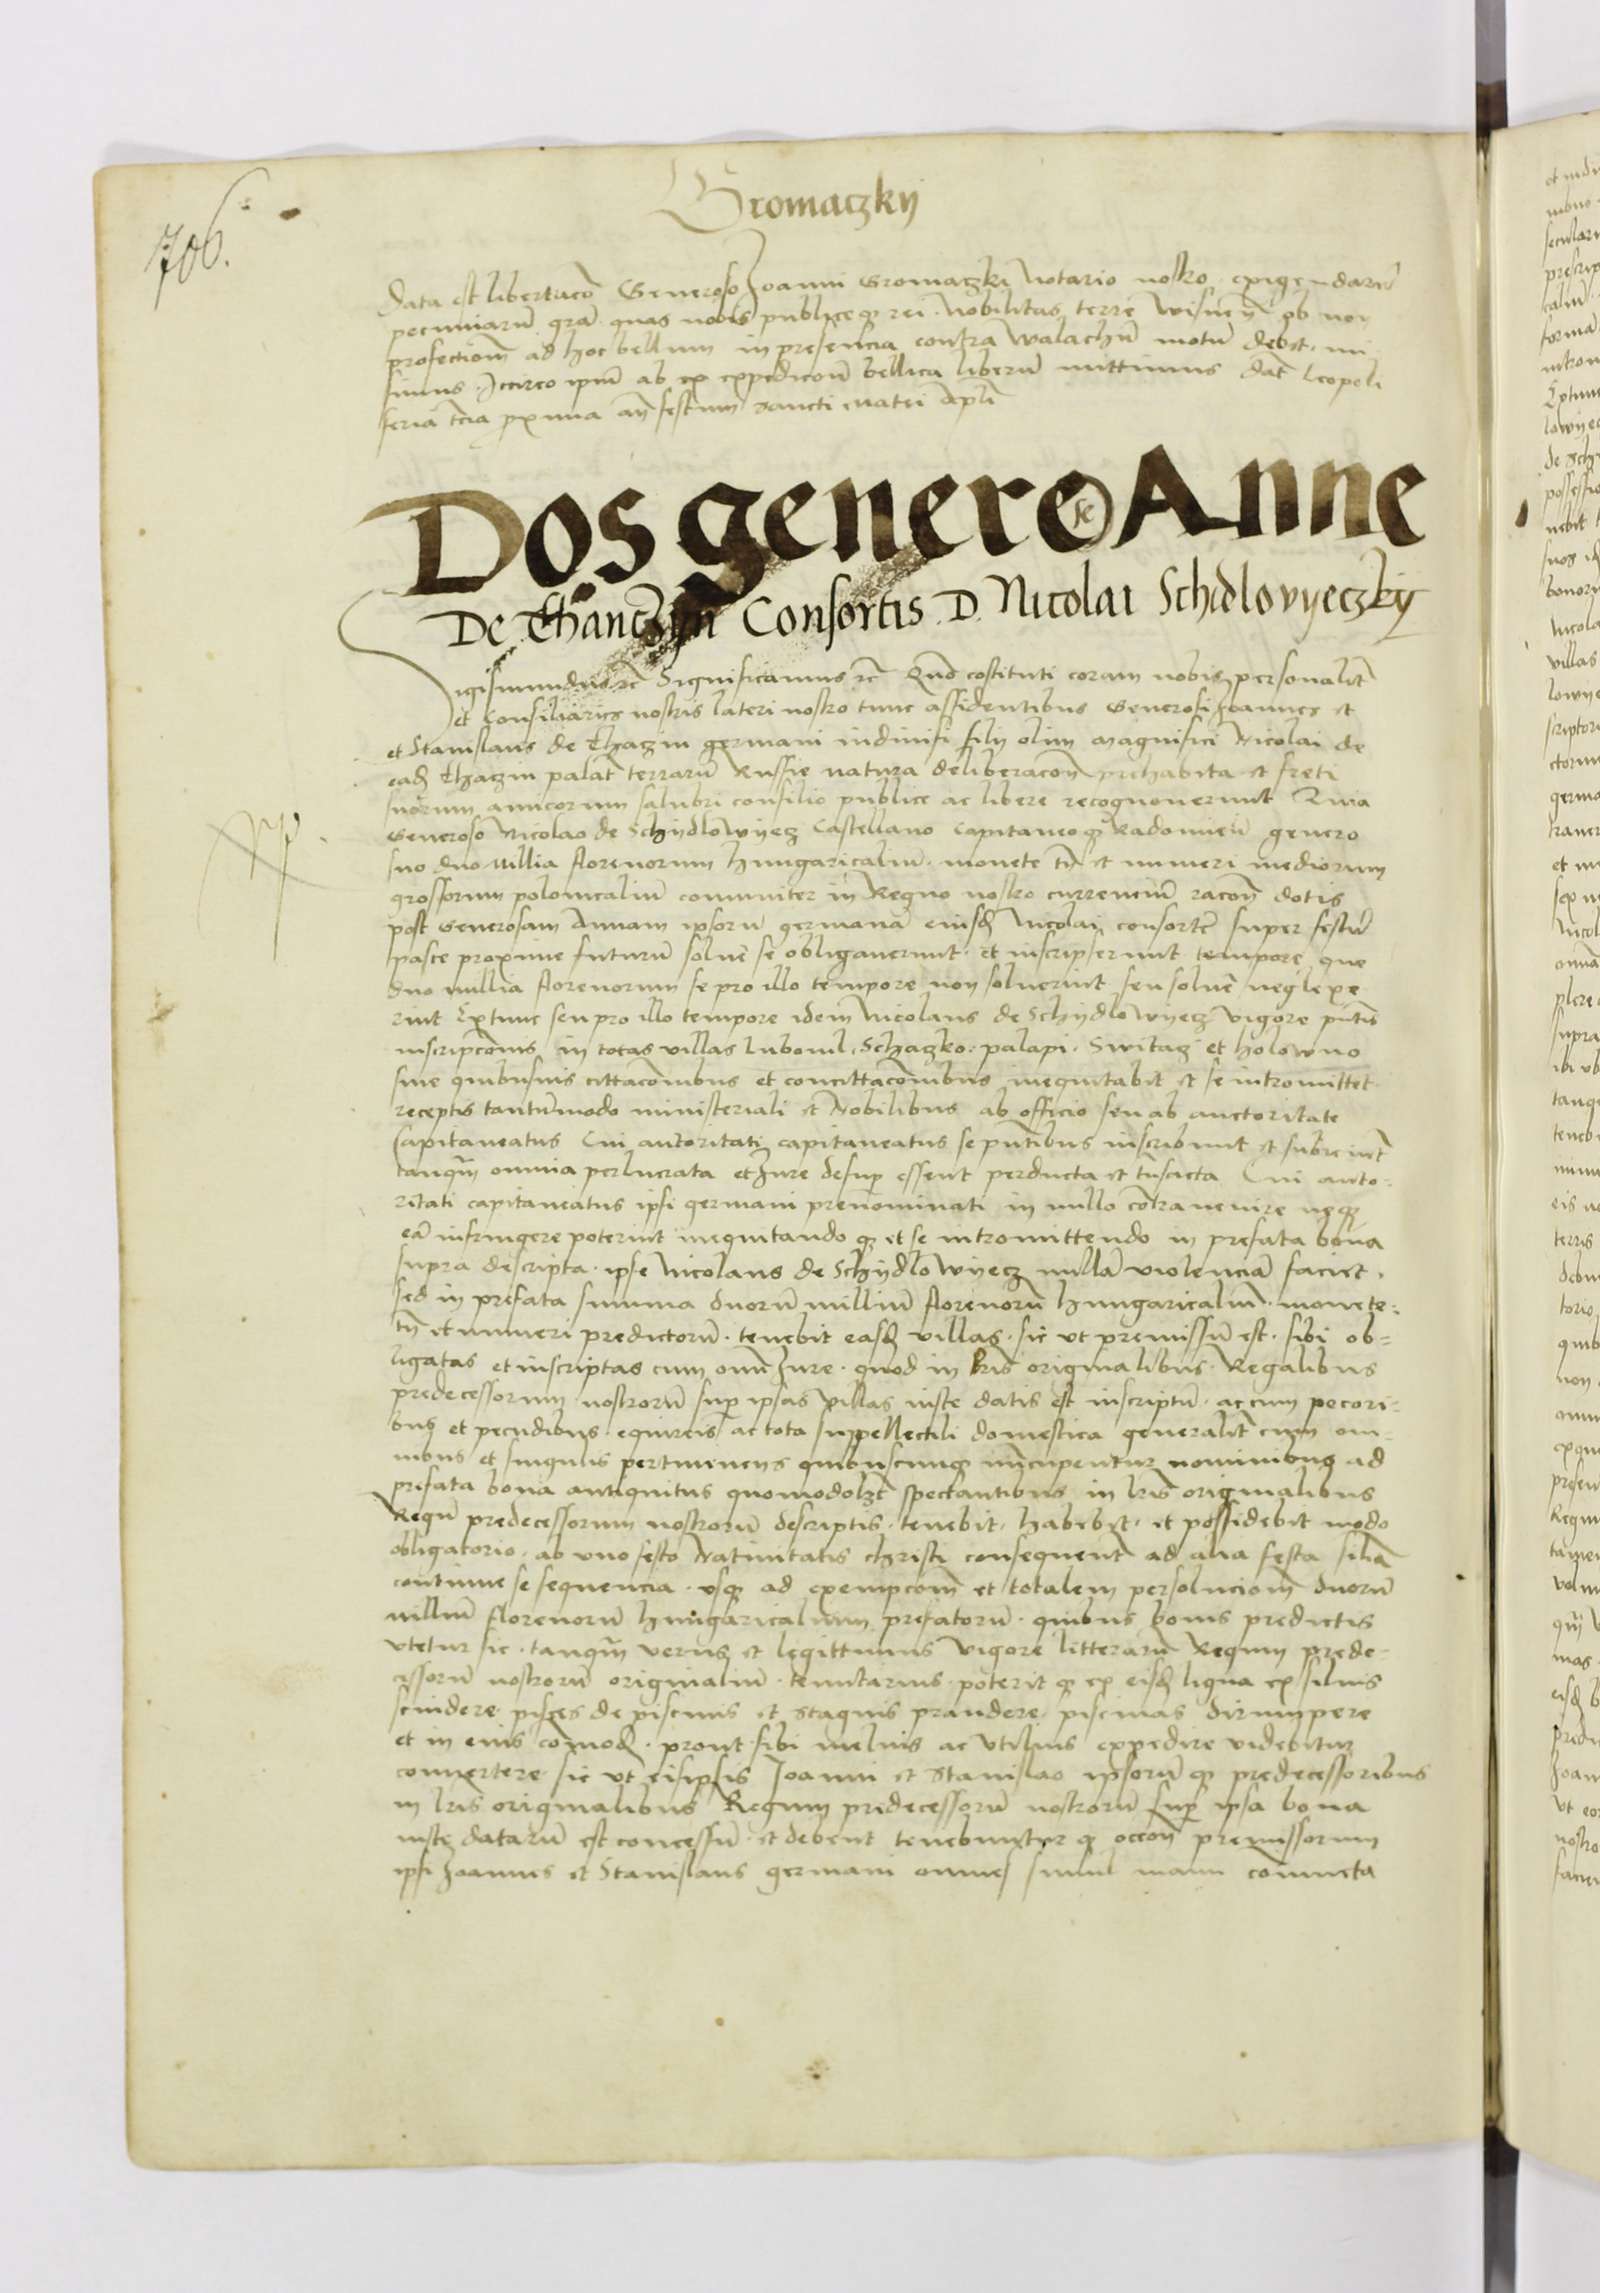 706.
Gromaczky
Data est libertacō Generoso Joanni Gromaczki Notario nostro exigendarū
pecuniarū grā quas nobis publiceqȝ rei Nobilitas terre Wisnen̄ ob non
profectionē ad hoc bellum in presencia contra Walachū motū debet mi
simus Iccirco ipm̄ ab ex expedicōe bellica liberū mittimus Dat̄ Leopoli
feria tcia proxima an̄ festum sancti Matei Apl̄i
Dos generose Anne
De Thanczyn Consortis D. Nicolai Schidlovyeczky
Sigismundus etc̄ Significamus etc̄ Quō costituti coram nobis personalit̄
et Consiliariis nostris lateri nostro tunc assidentibus Generosi Joannes et
et Stanislaus de Thaczin germani indiuisi filii olim Magnifici Nicolai de
eadē Thaczin palat̄ terrarū Russie matura deliberacōe prehabita et freti
suorum amicorum salubri consilio publice ac libere recognouerunt Quia
Generoso Nicolao de Schydlowyecz Castellano Capitaneoqȝ Radomien̄ genero
suo duo millia florenorum hungaricaliū monete tn̄ et numeri mediorum
grossorum polonicaliū comuniter in Regno nostro currenciū racōe dotis
post Generosam Annam ipsorū germanā eiusdē Nicolai consortē super festū
pasce proxime futurū soluē se obligauerunt et inscripserunt tempore que
duo millia florenorum se pro illo tempore non soluerint seu soluē neglexe
rint Extunc seu pro illo tempore idem Nicolaus de Schydlowyecz vigore pn̄tis
inscripcōnis in totas villas Luboml Schaczko palapi Switacz et holowno
siue quibusuis cittacōnibus et concittacōnibus inequitabit et se intromittet
receptis tantūmodo ministeriali et Nobilibus ab officio seu ab auctoritate
Capitaneatus Cui autoritati capitaneatus se pn̄tibus inscribunt et subiciunt
tanqm̄ omnia perlucrata et Jure desup̄ essent perducta et tn̄sacta Cui auto
ritati capitaneatus ipsi germani prenominati in nullo contrauenire neqȝ
eā infringere poterint inequitandoqȝ et se intromittendo in prefata bona
supra descripta ipse Nicolaus de Schydlowyecz nullā violenciā faciet
sed in prefata summa duorū milliū florenorū hungaricaliū monete
tn̄ et numeri predictorū tenebit easdē villas sic ut premissū est sibi ob=
ligatas et inscriptas cum omni Jure quod in lris originalibus Regalibus
predecessorum nostrorū sup̄ ipsas villas iuste datis est inscriptū ac cum pecori=
bus et pecudibus equireis ac tota suppellectili domestica generalit̄ cum om
nibus et singulis pertinenciis quibuscunqȝ nūcupentur nominibus ad
prefata bona antiquitus quomodolȝt spectantibus in lris originalibus
Regū predecessorum nostrorū descriptis tenebit habebit et possidebit modo
obligatorio ab vno festo Natiuitatis christi consequent̄ ad alia festa siliā
continue se sequencia vsqȝ ad exempcōm̄ et totalem persolucionē duorū
milliū florenorū hungaricalium prefatorū quibus bonis predictis
vtetur sic tanqm̄ verus et legittimus vigore litterarū Regum prede=
cessorū nostrorū originaliū tenutarius poteritqȝ ex eisdē ligna ex siluis
scindere pisces de piscinis et stagnis prandere piscinas dirumpere
et in eius cōmodū prout sibi melius ac vtilius expedire videbitur
conuertere sic vt eisipsis Joanni et Stanislao ipsorūqȝ predecessoribus
in lris originalibus Regum predecessorū nostrorū sup̄ ipsa bona
iuste datarū est concessū et debent tenebunturqȝ occōe premissorum
ipsi Joannes et Stanislaus germani omnes simul manu coniuncta